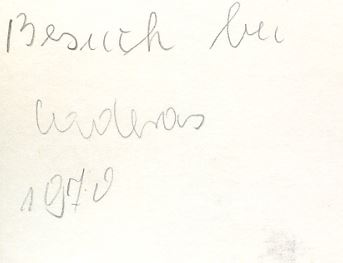 Besuch bei
Caderas
1970